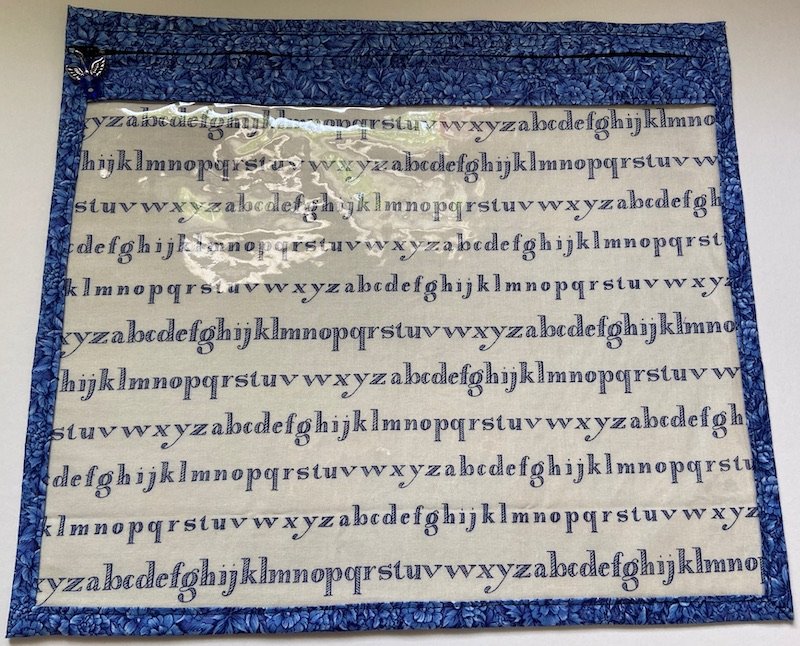 yzabcdefghijklmnopqrstuvwxyzabcdefghijklmno
hijklmnopqrstuvwxyzabcdefghijklmnopqrstuvw
stuvwxyzabcdefghijklmnopqrstuvwxyzabcdefgh
cdefghijklmnopqrstuvwxyzabcdefghijklmnopqrst
klmnopqrstuvwxyzabcdefghijklmnopqrstuvwxyz
xyzabcdefghijklmnopqrstuvwxyzabcdefghijklmno
hijklmnopqrstuvwxyzabcdefghijklmnopqrstuvw
stuvwxyzabcdefghijklmnopqrstuvwxyzabcdefgh
cdefghijklmnopqrstuvwxyzabcdefghijklmnopqrstu
klmnopqrstuvwxyzabcdefghijklmnopqrstuvwxyz
xyzabcdefghijklmnopqrstuvwxyzabcdefghijklmnop